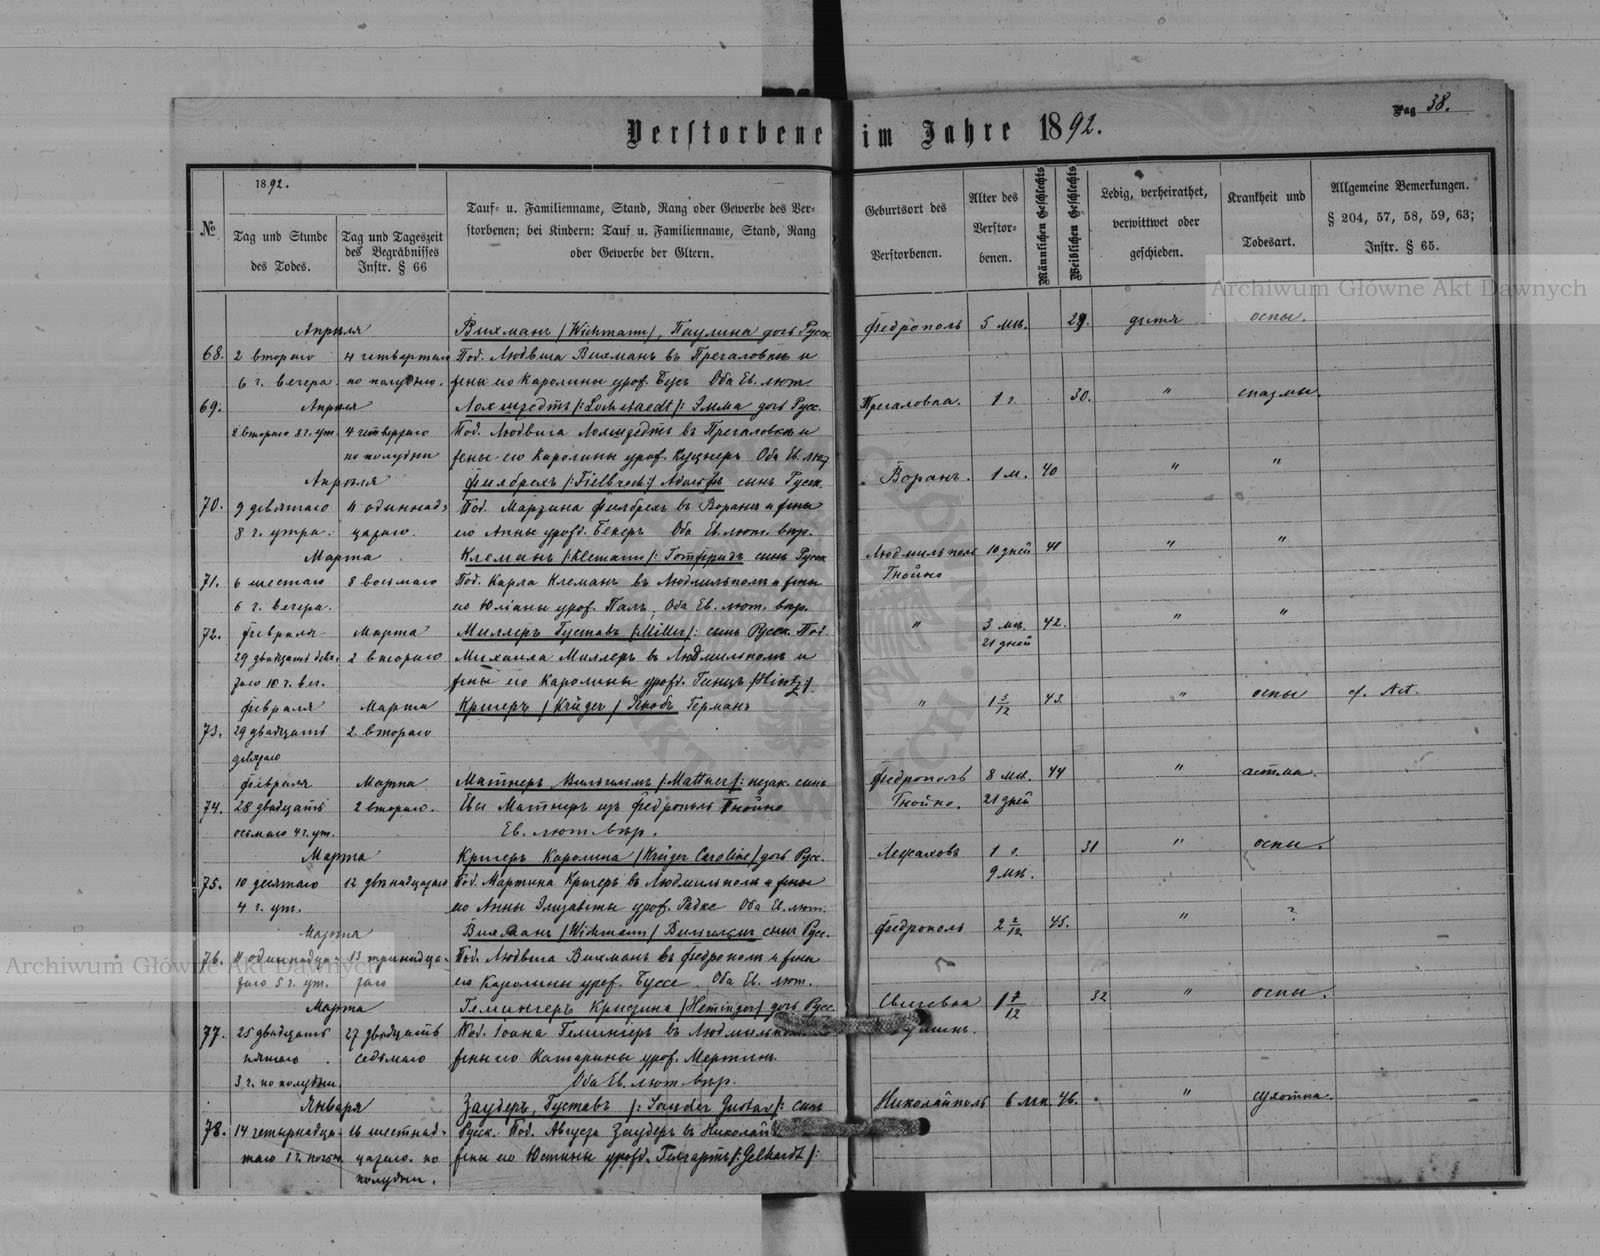 Pag 38.
Verstorbene im Jahre 1892.
№
1892.
Tag und Stunde
des Todes.
Tag und Tageszeit
des Begräbnisses
Instr. § 66
Tauf- u. Familienname, Stand, Rang oder Gewerbe des Ver-
storbenen; bei Kindern: Tauf u. Familienname, Stand, Rang
oder Gewerbe der Eltern.
Geburtsort des
Verstorbenen.
Alter des
Verstor-
benen.
Männlichen Geschlechts
Weiblichen Geschlechts
Ledig, verheirathet,
verwittwet oder
geschieden.
Krankheit und
Todesart.
Allgemeine Bemerkungen.
§ 204, 57, 58, 59, 63;
Instr. § 65.
Archiwum Główne Akt Dawnych
Апрѣля Вихманъ /Wichmann/, Паулина дочь Русск Федрополь 5 мѣс. 29. дитя оспы.
68. 2 втораго 4 четвертаго Под. Людвига Вихманъ въ Прегаловкѣ и
6 г. вечера. по полудню. жены его Каролины урож. Бусъ Оба Ев. лют
69. Апрѣля Лохштедтъ /:Lochstaedt/: Эмма дочь Русс. Прегаловка. 1 г. 30. " спазмы.
2 втораго 8 г. ут. 4 четвертаго Под. Людвига Лохштедтъ въ Прегаловкѣ и
по полудни жены его Каролины урож. Куцнеръ Оба Ев. лют
Апрѣля Филбрехъ /:Fielbrech:/ Адольфъ сынъ Русск. Воранъ. 1 м. 40 " "
70. 9 девятаго 11 одиннад- Под. Мартина Филбрехъ въ Воранѣ и жены
8 г. утра. цатаго. его Анны урожд. Бекеръ Оба Ев. лют. вѣр.
Марта Клеманъ /:Klemann/: Готфридъ сынъ Русск Людмильполь 10 дней 41 " "
71. 6 шестаго 8 восьмаго Под. Карла Клеманъ въ Людмильполѣ и жены Гнойно
6 г. вечера. его Юліаны урож. Палъ. Оба Ев. лют. вѣр.
72. Февраля Марта Миллеръ Густавъ /:Miller/: сынъ Русск. Под. " 3 мѣс. 42. " "
21 дней
29 двадцать девя- 2 втораго Михаила Миллеръ въ Людмильполѣ и
таго 10 г. веч. жены его Каролины урожд. Гинцъ /Hintz:/
Февраля Марта Кригеръ /Krüger/ Якобъ Германъ " 1 5/12 43. " оспы cf. Act.
73. 29 двадцать 2 втораго
девятаго
Февраля Марта Матнеръ Вильгельмъ /:Mattner/: незак. сынъ Федрополь 8 мѣс. 44 " астма.
74. 28 двадцать 2 втораго. Евы Матнеръ изъ Федрополь Гнойно Гнойно. 21 дней
осьмаго 4 г. ут. Ев. лют вѣр.
Марта Кригеръ Каролина /Krüger Caroline/ дочь Русс. 1 г. 31 " оспы.
75. 10 десятаго 12 двѣнадцатаго Под. Мартина Кригеръ въ Людмильполѣ и жены 9 мѣс.
4 г. ут. его Анны Элизаветы урож. Радке Оба Ев. лют.
Марта Вихманъ /Wichmann/ Вильгельмъ сынъ Русс. Федрополь 2 2/12 45. " ?
76. 11 одиннадца- 13 тринадца- Под. Людвига Вихманъ въ Федрополѣ и жены
таго 5 г. ут. таго его Каролины урож. Буссе Оба Ев. лют.
Archiwum Główne Akt Dawnych
Марта Гемингеръ Кристина /Heminger/ дочь Русс 1 7/12 32 " оспы.
77. 25 двадцать 27 двадцать Под. Іоана Гемингеръ въ
пятаго седьмаго жены его Катарины урож. Мертинъ.
3 г. по полудни. Оба Ев. лют вѣр.
Января Заудеръ, Густавъ /: Sauder Gustav/: сынъ Николайполь 6 мѣс. 46. " сухотна.
78. 14 четырнадца- 16 шестнад- Русск. Под. Августа Заудеръ въ
таго 1 г. цатаго. по жены его Юстины урожд. Гелгартъ /:Gelhardt/:
полудни.